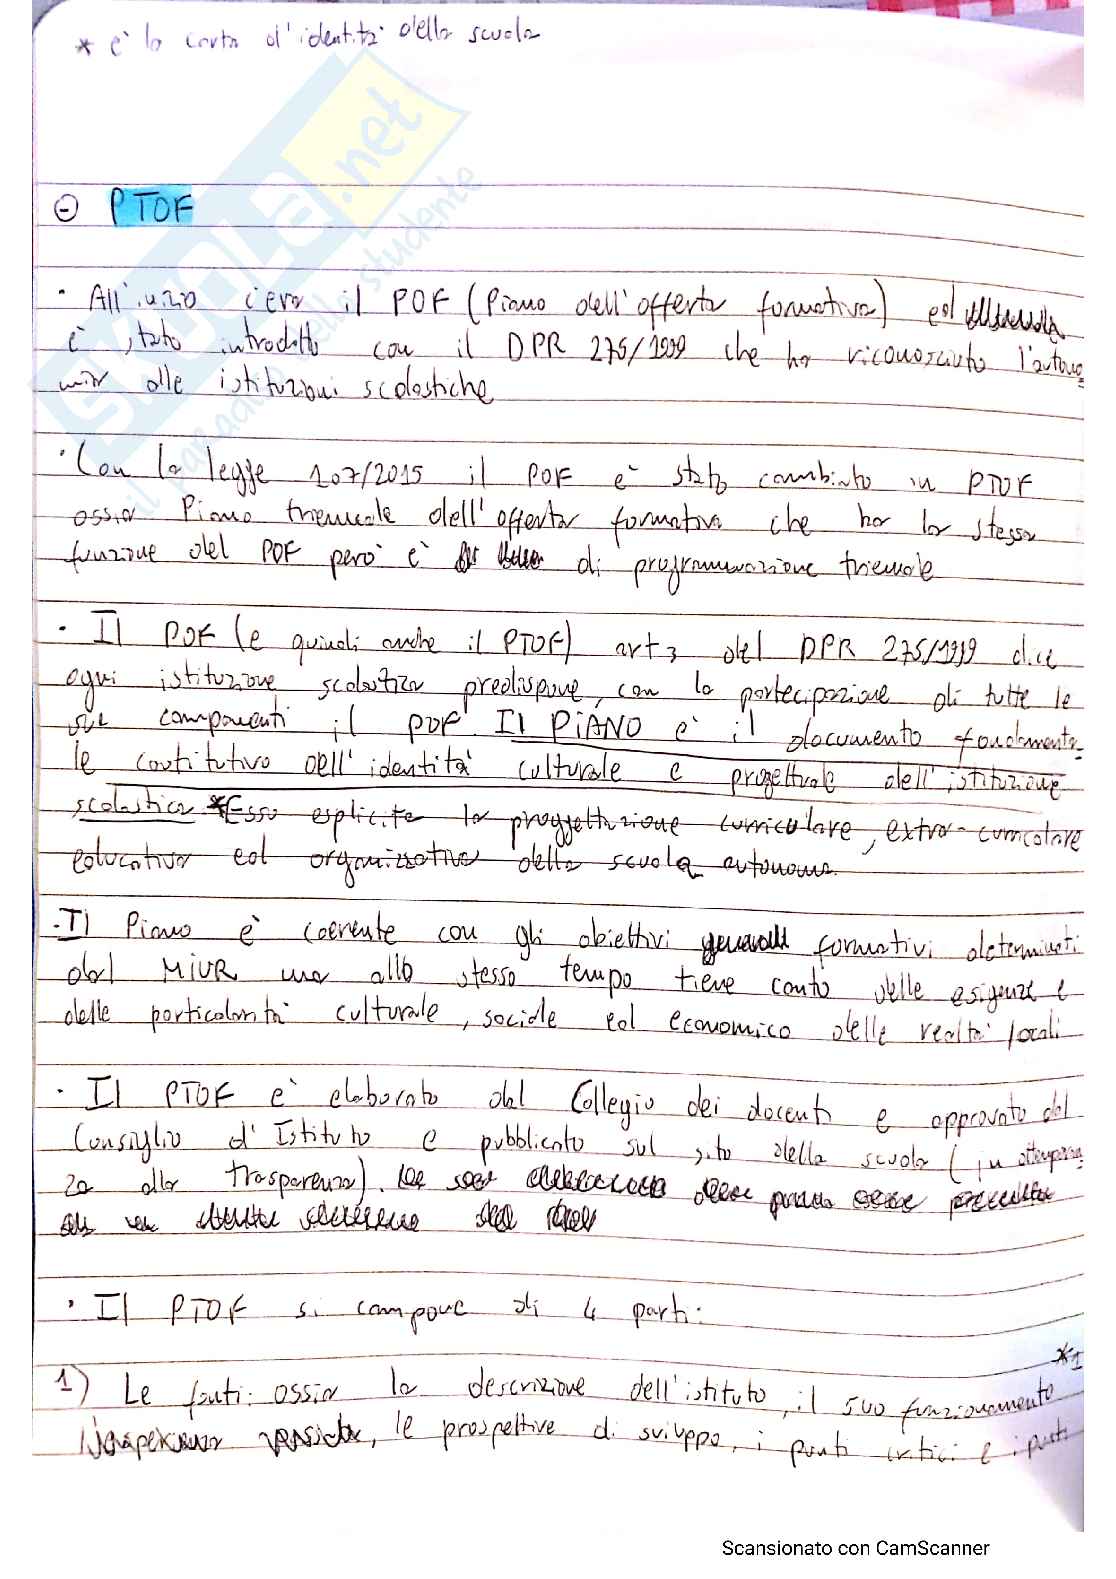 * è la carta d'identità della scuola
⊖ PTOF
· All'inizio c'era il POF (Piano dell'offerta formativa) ed
è stato introdotto con il DPR 275/1999 che ha riconosciuto l'autono
mia alle istituzioni scolastiche
· Con la legge 107/2015 il POF è stato cambiato in PTOF
ossia Piano triennale dell'offerta formativa che ha la stessa
funzione del POF però è di programmazione triennale
· Il POF (e quindi anche il PTOF) art 3 del DPR 275/1999 dice
ogni istituzione scolastica predispone, con la partecipazione di tutte le
sue componenti il POF. Il PIANO è il documento fondamenta-
le costitutivo dell'identità culturale e progettuale dell'istituzione
scolastica * Esso esplicita la progettazione curriculare, extra-curricolare
educativa ed organizzativa della scuola autonoma.
· Il Piano è coerente con gli obiettivi formativi determinati
dal MIUR ma allo stesso tempo tiene conto delle esigenze e
delle particolarità culturale, sociale ed economico delle realtà locali
· Il PTOF è elaborato dal Collegio dei docenti e approvato dal
Consiglio d'Istituto e pubblicato sul sito della scuola (in ottempera
za alla trasparenza).
· Il PTOF si compone di 4 parti:
*1
1) Le fonti: ossia la descrizione dell'istituto, il suo funzionamento
, le prospettive di sviluppo, i punti critici e i punti
skuola.net
il paradiso dello studente
Scansionato con CamScanner